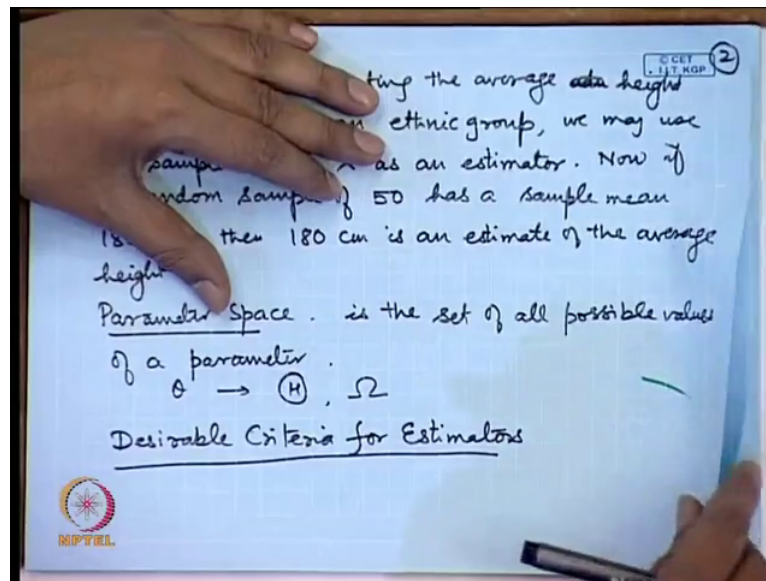 © CET
I.I.T. KGP
2
ting the average height
an ethnic group, we may use
sampl as an estimator. Now if
ndom sample of 50 has a sample mean
18 then 180 cm is an estimate of the average
height
Parameter Space. is the set of all possible values
of a parameter.
θ → Ⓗ, Ω
Desirable Criteria for Estimators
NPTEL